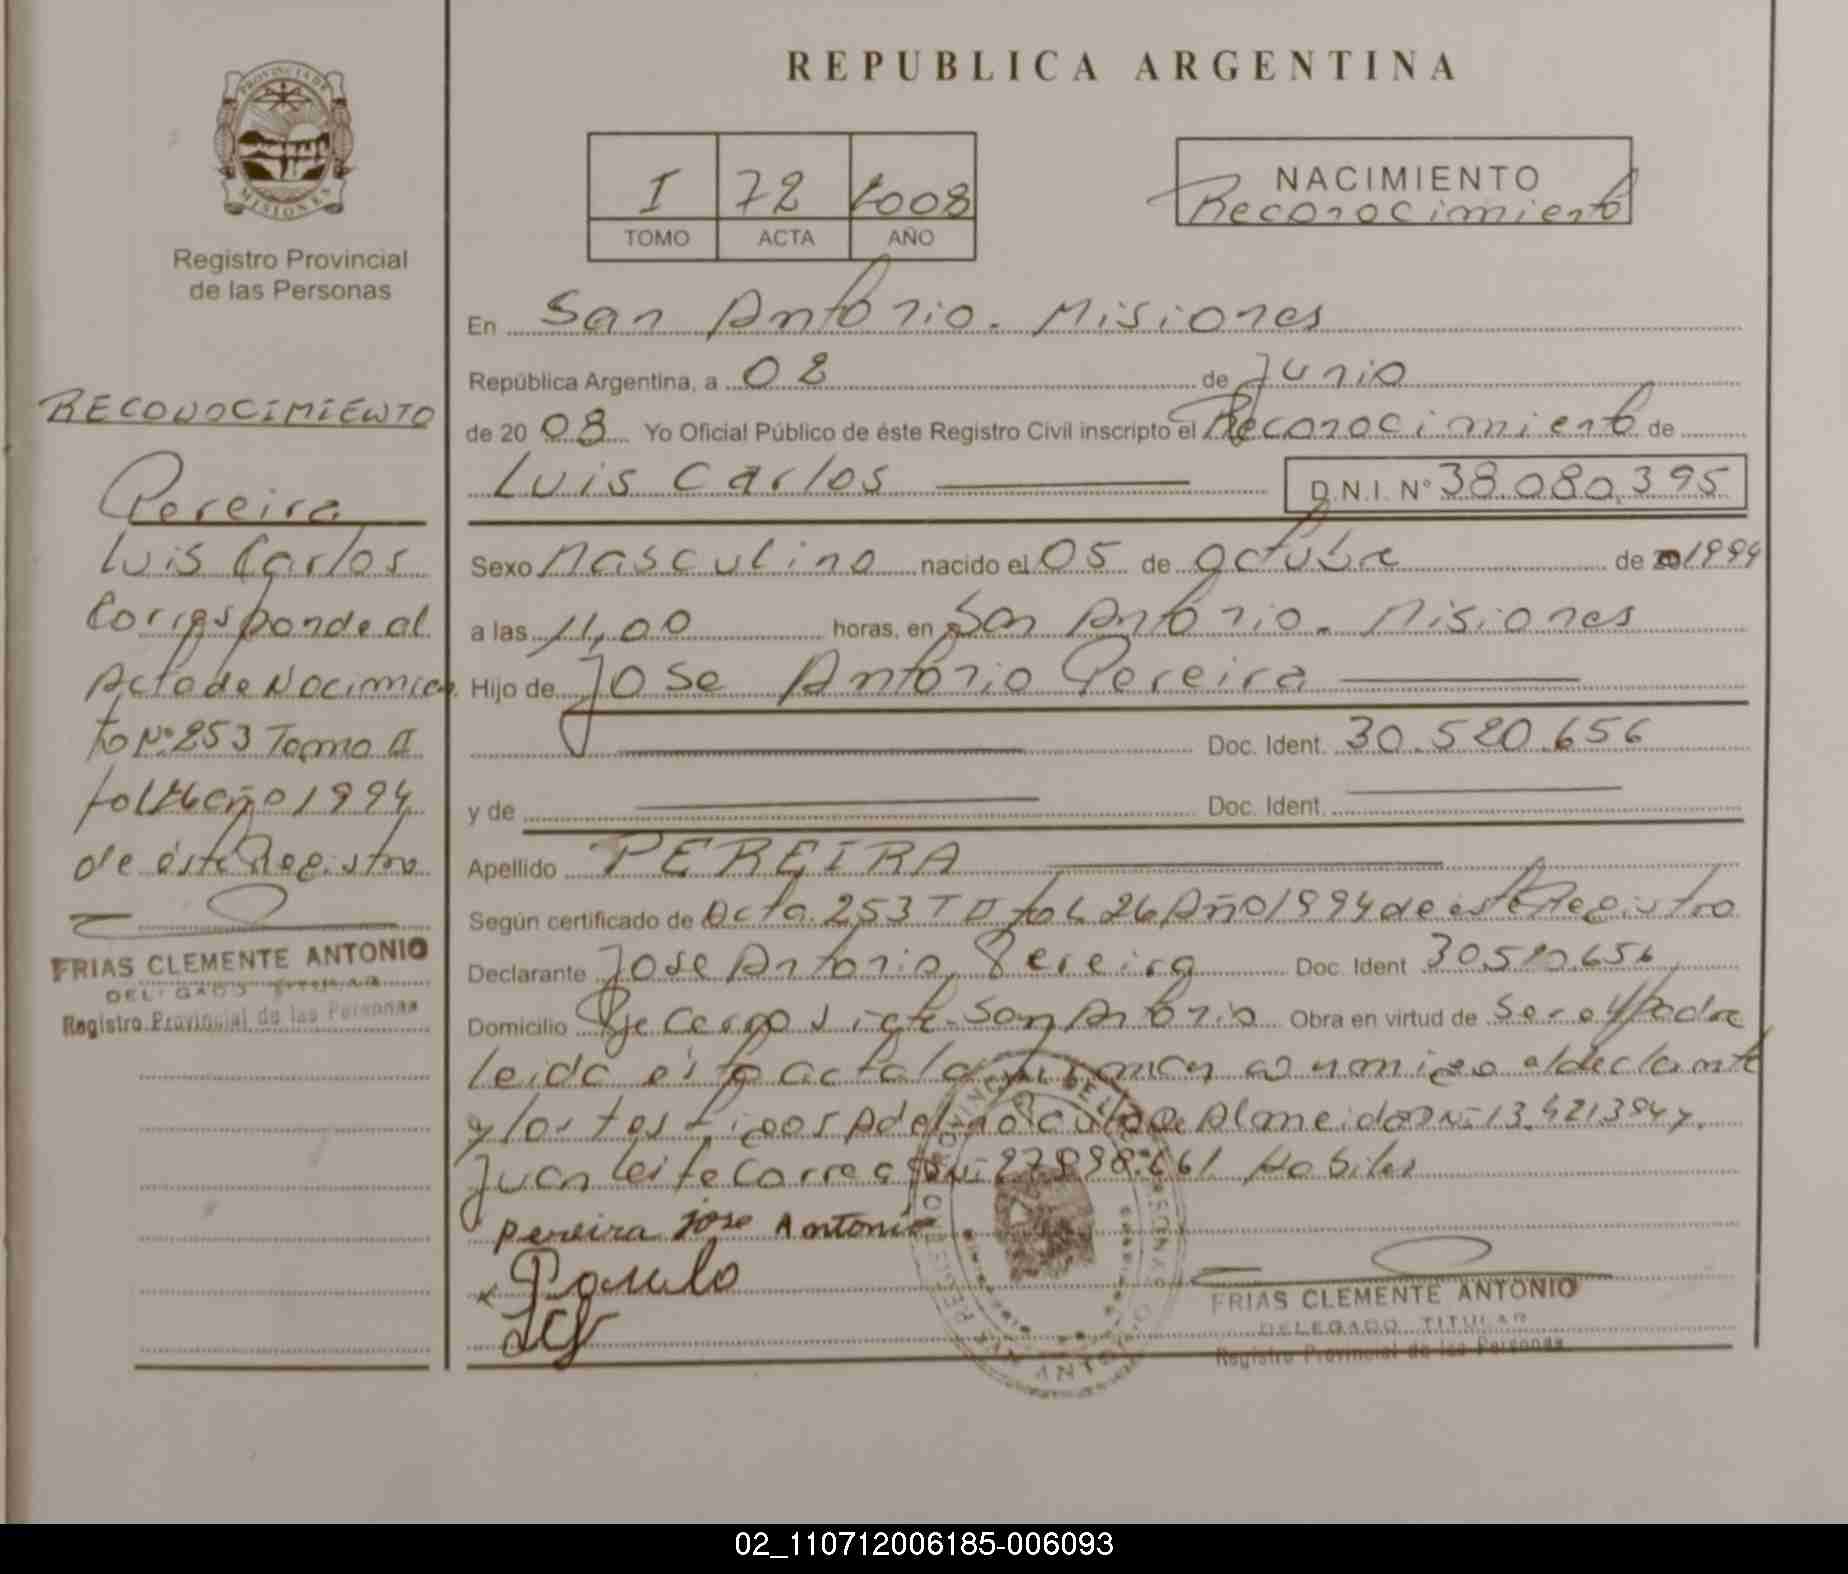 REPUBLICA ARGENTINA
PROVINCIA DE
MISIONES
Registro Provincial
de las Personas
I 72 2008
TOMO ACTA AÑO
NACIMIENTO
Reconocimiento
En San Antonio. Misiones
República Argentina, a 02 de Junio
de 2008 Yo Oficial Público de éste Registro Civil inscripto el Reconocimiento de
Luis Carlos D.N.I. Nº 38.080.395
Sexo Masculino nacido el 05 de octubre de 1994
a las 11,00 horas, en San Antonio. Misiones
Hijo de Jose Antonio Pereira
Doc. Ident. 30.520.656
y de Doc. Ident.
Apellido PEREIRA
Según certificado de Acta 253 T II fol. 26 Año 1994 de este Registro
Declarante Jose Antonio Pereira Doc. Ident 30.520.656
Domicilio San Antonio Obra en virtud de Ser el Padre
leida esta acta la firman conmigo el declarante
y los testigos Almeida DNI 13.421394 y.
Juan Leite Correa DNI 27898.661 Habiles
pereira jose Antonio
FRIAS CLEMENTE ANTONIO
DELEGADO TITULAR
Registro Provincial de las Personas
RECONOCIMIENTO
Pereira
Luis Carlos
Corresponde al
Acta de Nacimien
to Nº 253 Tomo II
fol 26 año 1994
de éste Registro
FRIAS CLEMENTE ANTONIO
DELEGADO TITULAR
Registro Provincial de las Personas
02_110712006185-006093